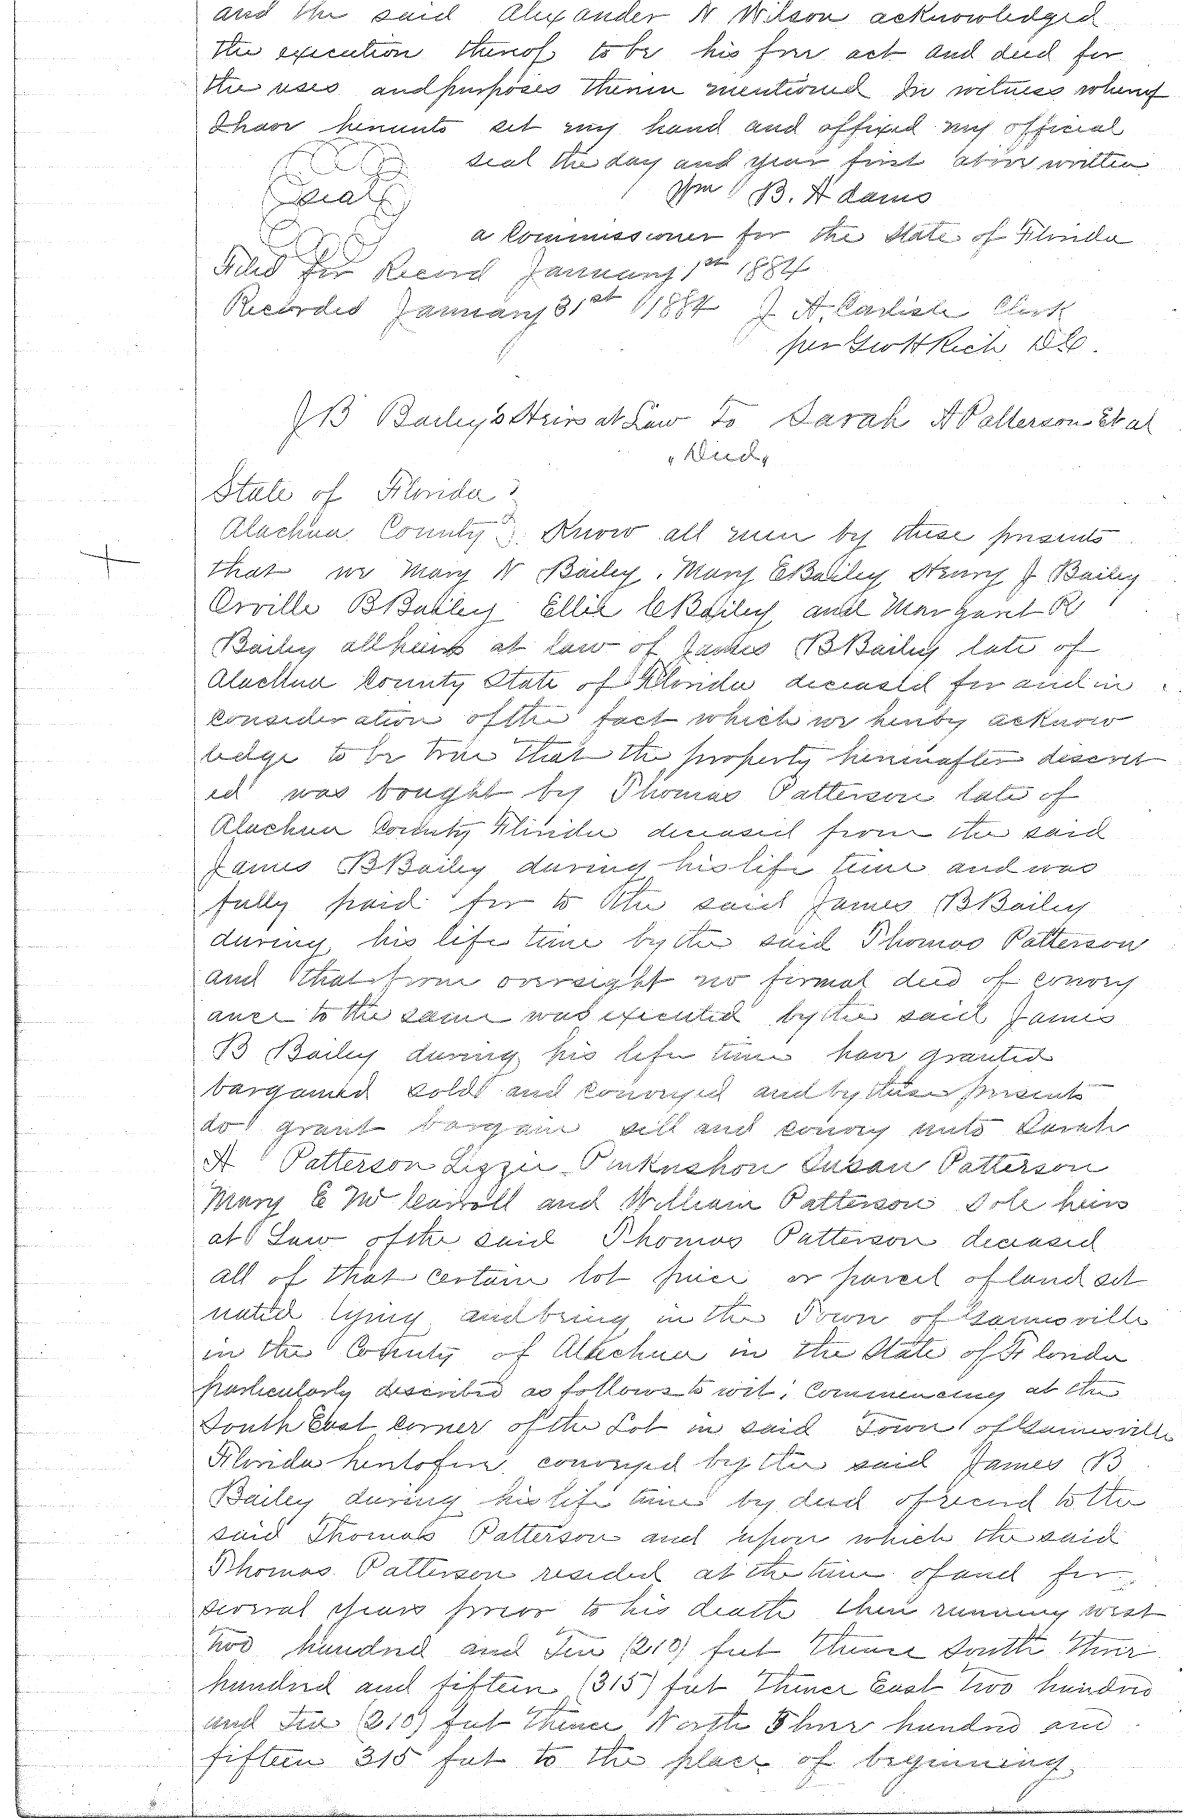 and the said Alexander N Wilson acknowledged
the execution thereof to be his free act and deed for
the uses and purposes therein mentioned In witness whereof
I have hereunto set my hand and affixed my official
seal the day and year first above written
Seal
Wm B. Adams
a Commissioner for the State of Florida
Filed for Record January 1st 1884
Recorded January 31st 1884 J. A. Carlisle Clerk
per Geo H Rich D.C.
J B Bailey's Heirs at Law To Sarah A Patterson Et al
"Deed"
State of Florida }
Alachua County } Know all men by these presents
that we Mary N Bailey, Mary E Bailey Henry J Bailey
Orville B Bailey Ellie C Bailey and Margaret R
Bailey all heirs at law of James B Bailey late of
Alachua County State of Florida deceased for and in
consideration of the fact which we hereby acknow
ledge to be true that the property hereinafter discret
ed was bought by Thomas Patterson late of
Alachua County Florida deceased from the said
James B Bailey during his life time and was
fully paid for to the said James B Bailey
during his life time by the said Thomas Patterson
and that from oversight no formal deed of convey
ance to the same was executed by the said James
B Bailey during his life time have granted
bargained sold and conveyed and by these presents
do grant bargain sell and convey unto Sarah
A Patterson Lizzie Pinkushon Susan Patterson
Mary E McCarroll and William Patterson sole heirs
at Law of the said Thomas Patterson deceased
all of that certain lot piece or parcel of land sit
uated lying and being in the Town of Gainesville
in the County of Alachua in the State of Florida
particularly described as follows to wit: Commencing at the
South East corner of the Lot in said Town of Gainesville
Florida heretofore conveyed by the said James B
Bailey during his life time by deed of record to the
said Thomas Patterson and upon which the said
Thomas Patterson resided at the time of and for
several years prior to his death then running west
two hundred and Ten (210) feet thence South three
hundred and fifteen (315) feet thence East two hundred
and Ten (210) feet thence North Three hundred and
fifteen 315 feet to the place of beginning.